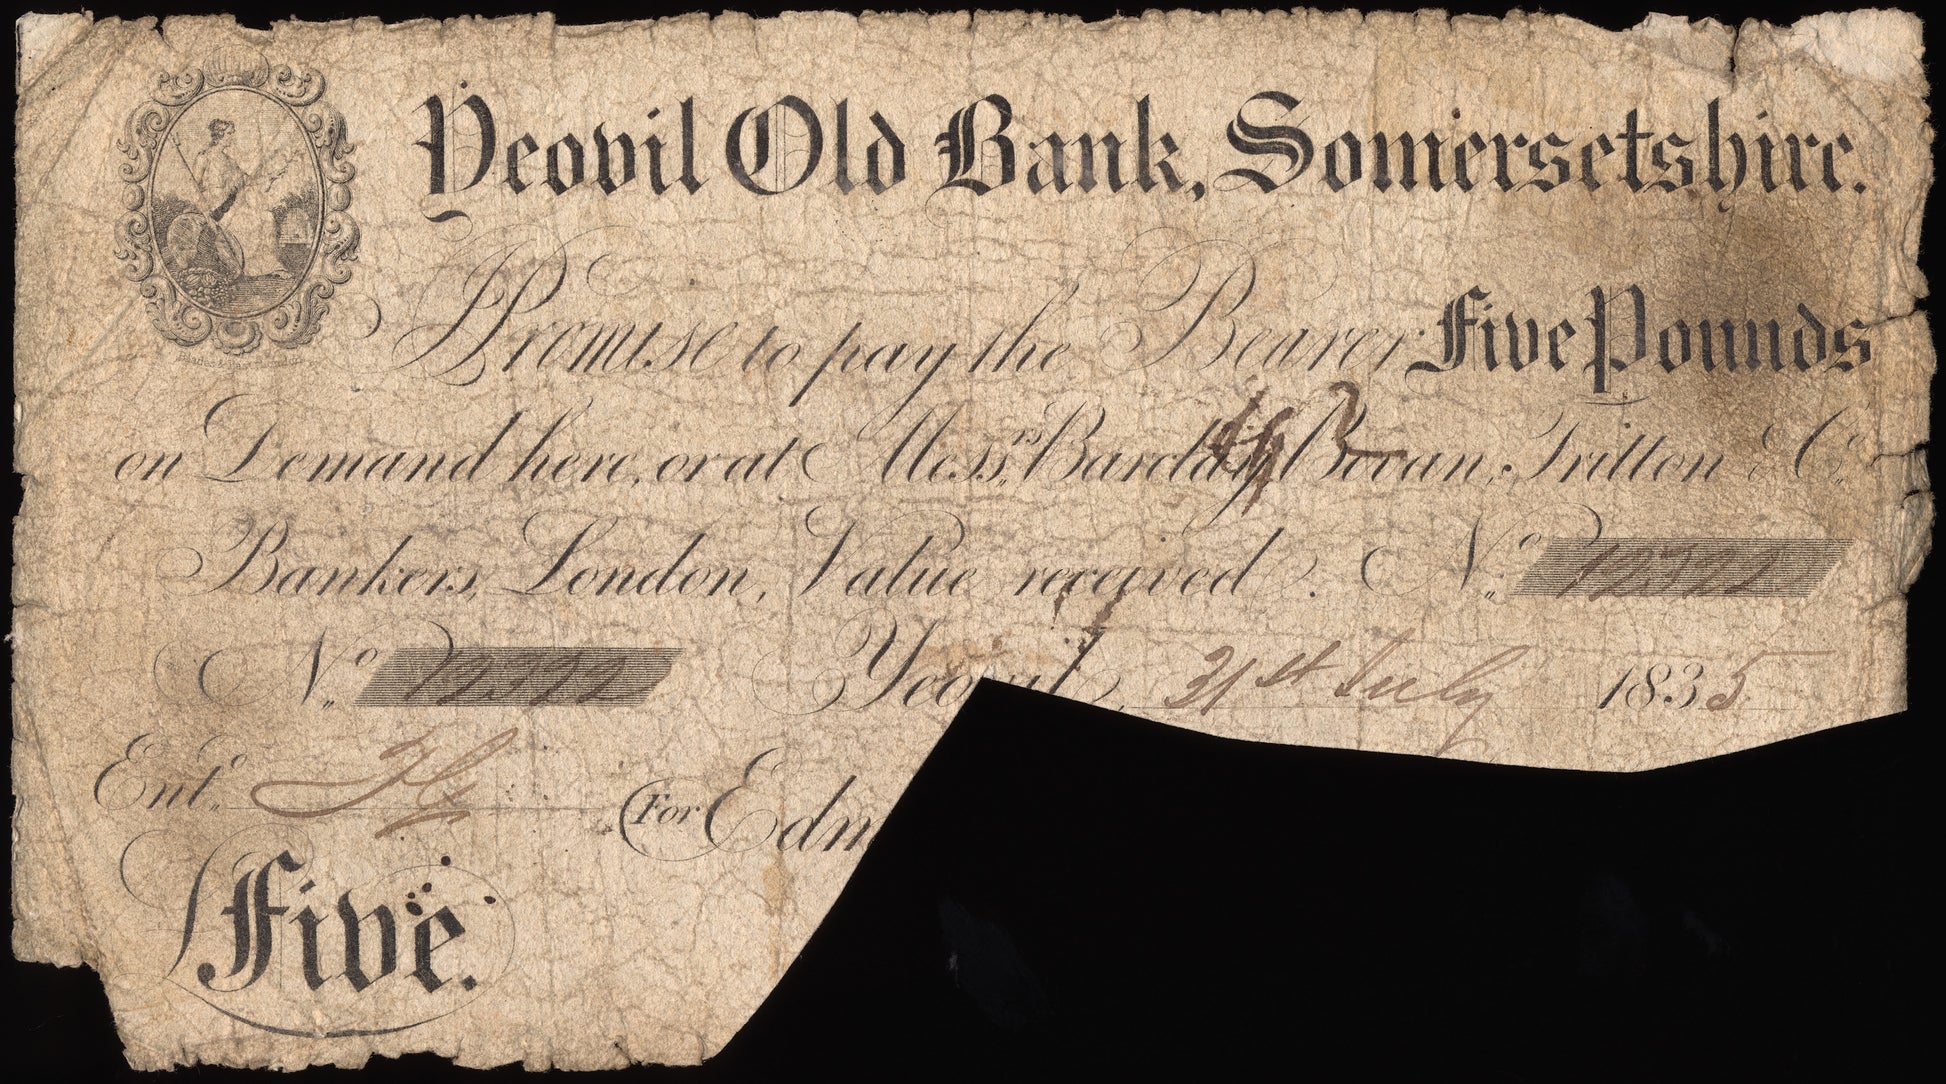 Yeovil Old Bank, Somersetshire.
I Promise to pay the Bearer Five Pounds
on Demand here, or at Mess.rs Barclay, Bevan, Tritton & Co.
Bankers, London, Value received. No.
No. Yeovil, 31st July 1835
Ent.d (For Edm
Five.